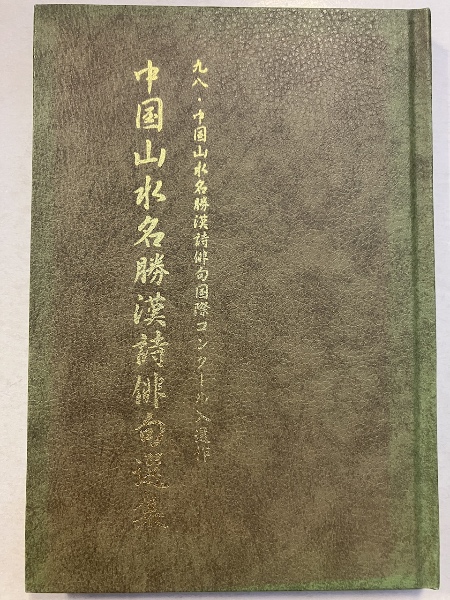 九八・中国山水名勝漢詩俳句国際コンクール入選作
中国山水名勝漢詩俳句選集